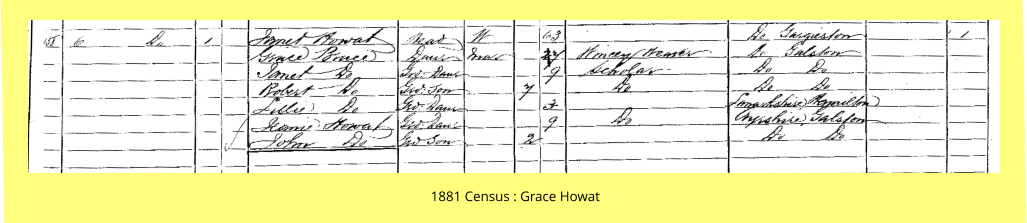 6 Do 1 Janet Howat Head W 63 Do Fergueston 1
Grace Bruce Daur Mar Wincey Weaver Do Galston
Janet Do Gd. Daur 9 Scholar Do Do
Robert Do Grd. Son 7 Do Do Do
Lillie Do Grd. Daur 3 Lanarkshire, Hamilton
Jeanie Howat Grd. Daur 9 Do Ayrshire, Galston
John Do Grd Son 2 Do Do
1881 Census : Grace Howat